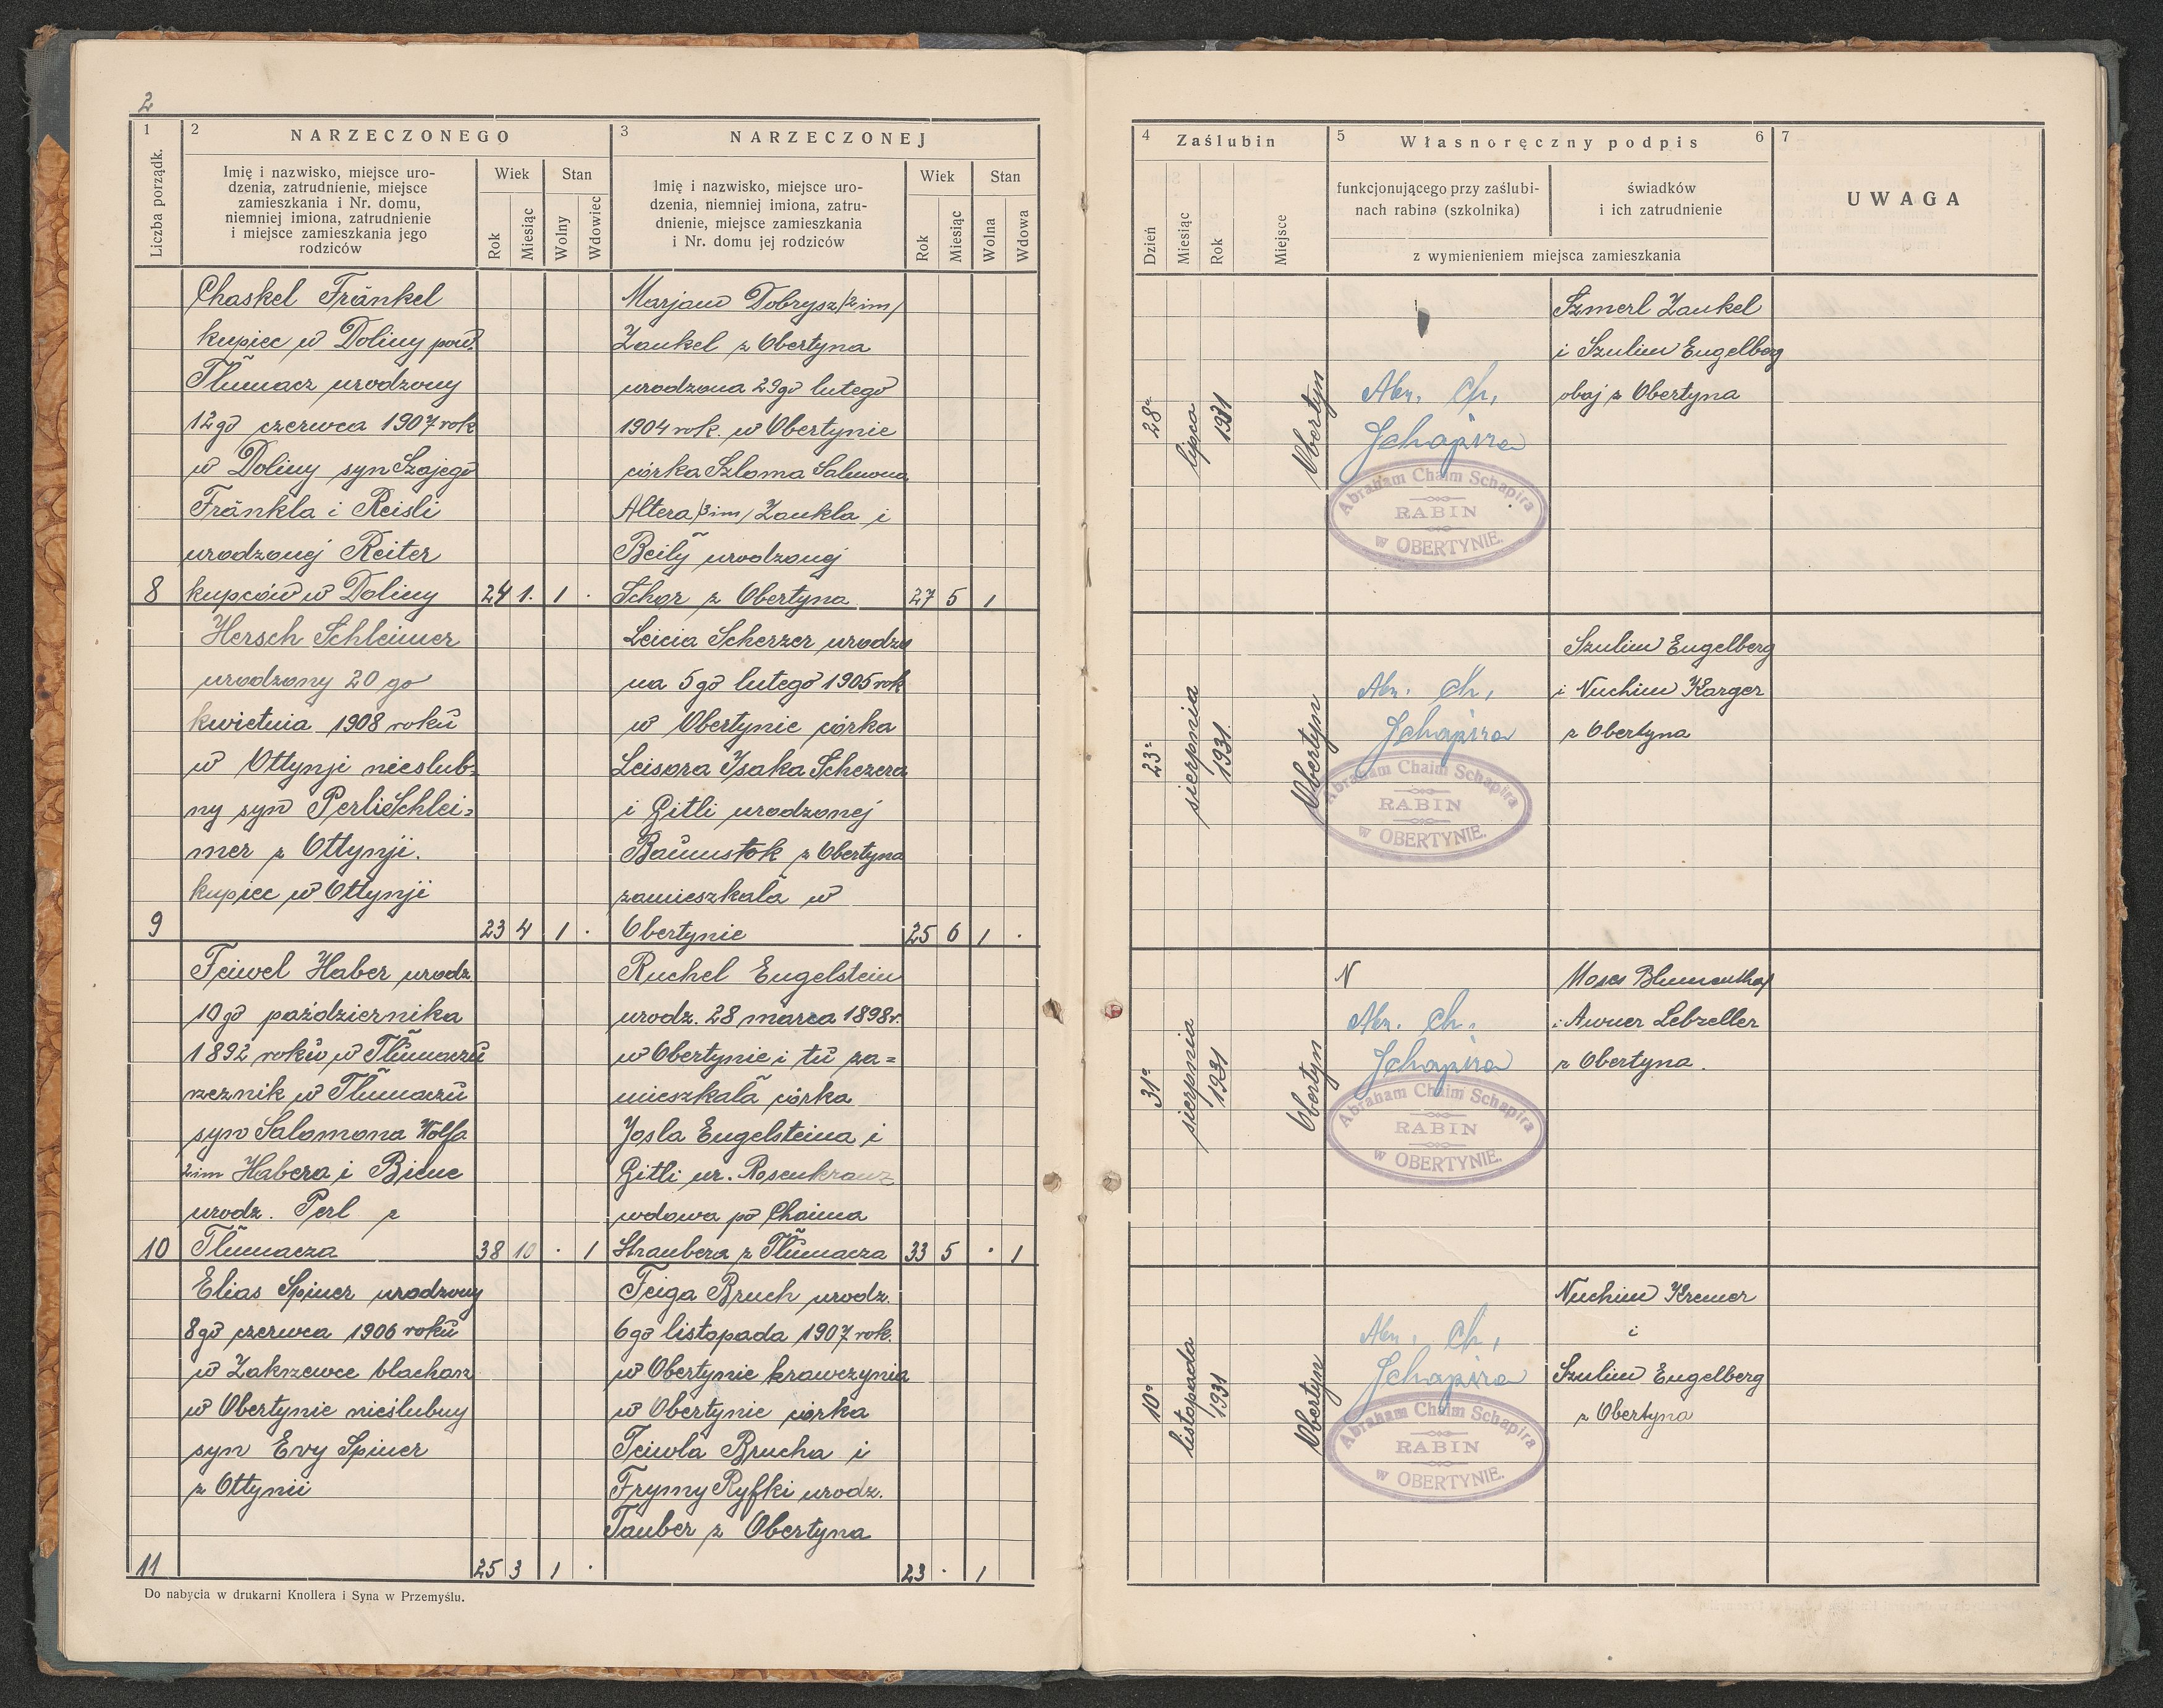 2
1
Liczba porządk.
2
NARZECZONEGO
Imię i nazwisko, miejsce uro-
dzenia, zatrudnienie, miejsce
zamieszkania i Nr. domu,
niemniej imiona, zatrudnienie
i miejsce zamieszkania jego
rodziców
Wiek
Stan
Rok
Miesiąc
Wolny
Wdowiec
3
NARZECZONEJ
Imię i nazwisko, miejsce uro-
dzenia, niemniej imiona, zatru-
dnienie, miejsce zamieszkania
i Nr. domu jej rodziców
Wiek
Stan
Rok
Miesiąc
Wolna
Wdowa
4
Zaślubin
Dzień
Miesiąc
Rok
Miejsce
5
Własnoręczny podpis
6
funkcjonującego przy zaślubi-
nach rabina (szkolnika)
świadków
i ich zatrudnienie
z wymienieniem miejsca zamieszkania
7
UWAGA
Chaskel Fränkel
kupiec w Doliny pow.
Tłumacz urodzony
12go czerwca 1907 rok
w Doliny syn Szajego
Fränkla i Reisli
urodzonej Reiter
8 kupców w Doliny 24 1. 1 .
Marjam Dobrysz /2im/
Zankel z Obertyna
urodzona 29go lutego
1904 rok. w Obertynie
córka Szloma Salmona
Altera /3im/ Zankla i
Beily urodzonej
Schor z Obertyna 27 5 1
28o
lipca
1931
Obertyn
Abr. Ch.
Schapira
Abraham Chaim Schapira
RABIN
w OBERTYNIE.
Szmerl Zankel
i Szulim Engelberg
obaj z Obertyna
Hersch Schleimer
urodzony 20 go
kwietnia 1908 roku
w Ottynji nieslub-
ny syn Perli Schlei=
mer z Ottynji.
kupiec w Ottynji
9 23 4 1 .
Leicia Scherzer urodzo
na 5go lutego 1905 rok
w Obertynie córka
Leisora Ysaka Schezera
i Gitli urodzonej
Baumstok z Obertyna
zamieszkała w
Obertynie 25 6 1 .
23o
sierpnia
1931
Obertyn
Abr. Ch.
Schapira
Abraham Chaim Schapira
RABIN
w OBERTYNIE.
Szulim Engelberg
i Nuchim Karger
z Obertyna
Feiwel Haber urodz
10go października
1892 roku w Tłumaczu
rzeznik w Tłumaczu
syn Salomona Wolfa
2im Habera i Biene
urodz. Perl z
10 Tłumacza 38 10 . 1
Ruchel Engelstein
urodz. 28 marca 1898r.
w Obertynie i tu za=
mieszkała córka
Josla Engelsteina i
Gitli ur. Rosenkranz
wdowa po Chaima
Straubera z Tłumacza 33 5 . 1
31o
sierpnia
1931
Obertyn
N
Abr. Ch.
Schapira
Abraham Chaim Schapira
RABIN
w OBERTYNIE.
Moses Blumenthal
i Awner Lebzelter
z Obertyna.
Elias Spiner urodzony
8go czerwca 1906 roku
w Zakrzewce blacharz
w Obertynie nieślubny
syn Evy Spiner
z Ottynii
11 25 3 1 .
Feiga Bruch urodz.
6go listopada 1907 rok.
w Obertynie krawczynia
w Obertynie córka
Feiwla Brucha i
Frymy Ryfki urodz.
Tauber z Obertyna
23 . 1
10o
listopada
1931
Obertyn
Abr. Ch.
Schapira
Abraham Chaim Schapira
RABIN
w OBERTYNIE.
Nuchim Kremer
i
Szulim Engelberg
z Obertyna
Do nabycia w drukarni Knollera i Syna w Przemyślu.